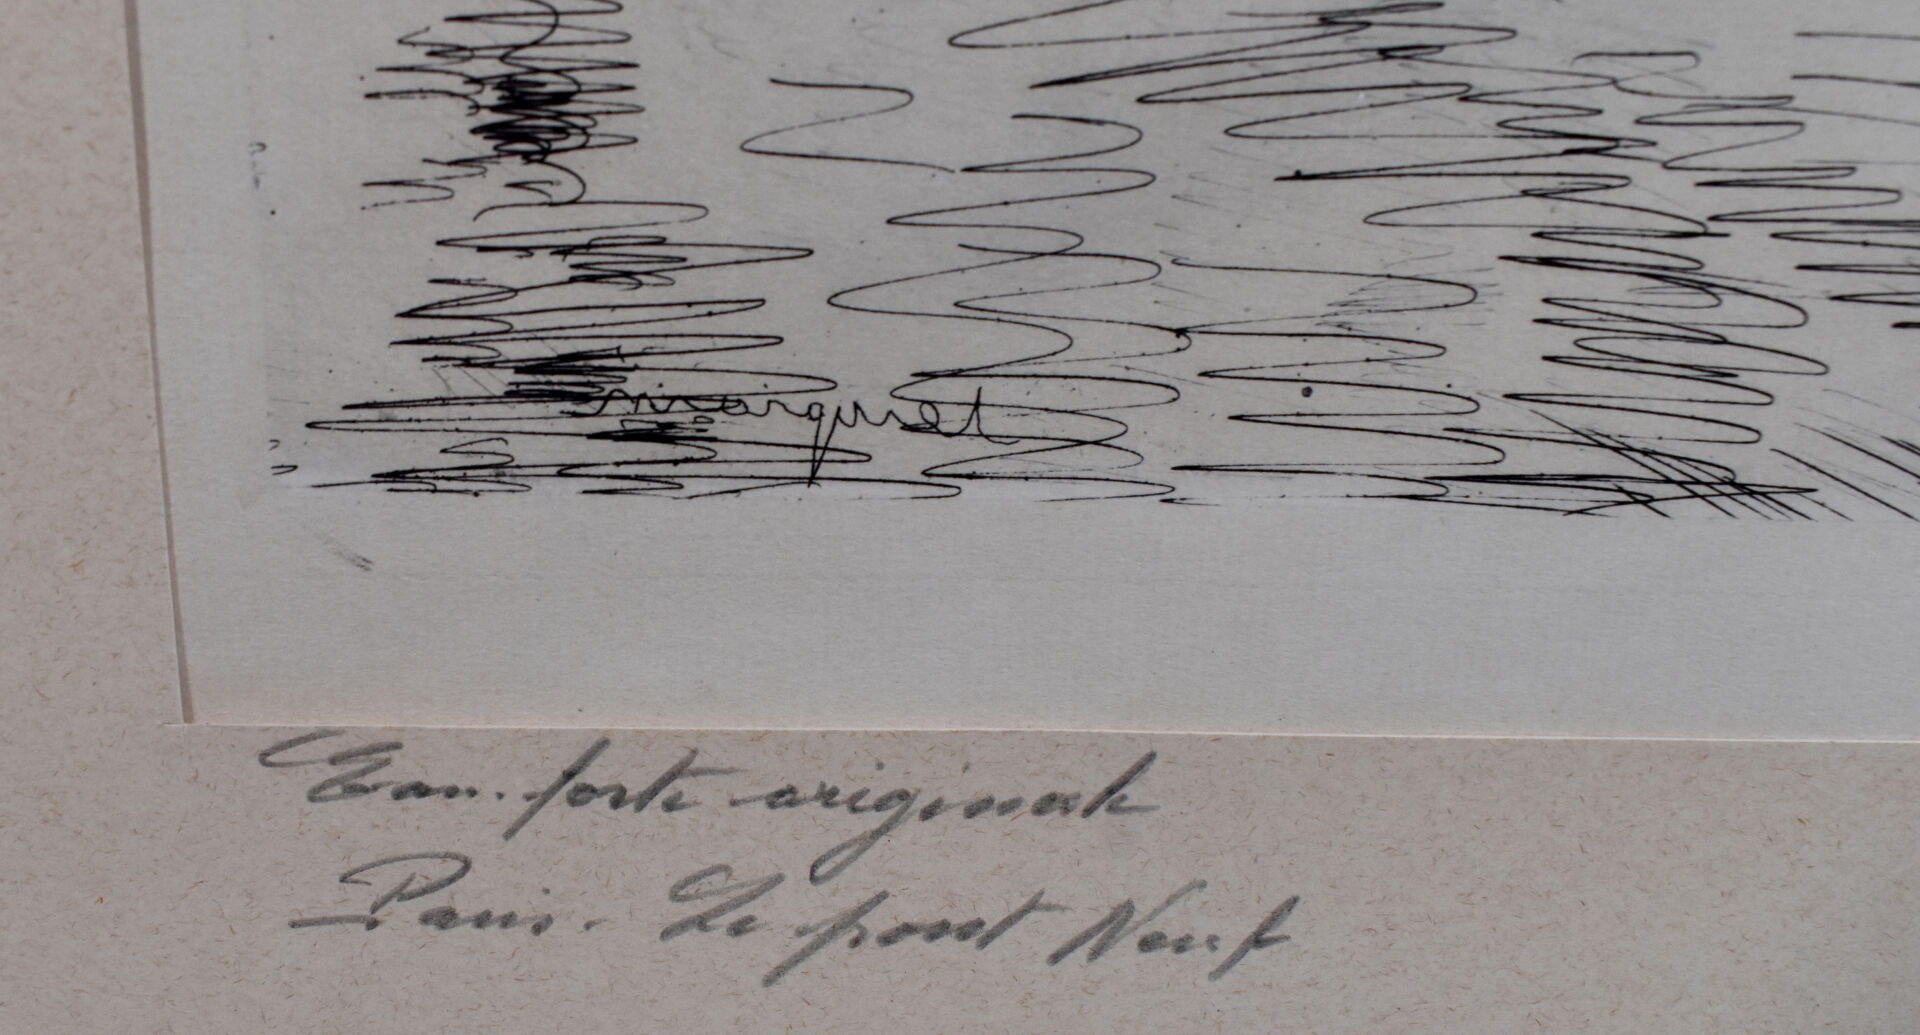 marquet
Eau-forte originale
Paris - Le pont Neuf